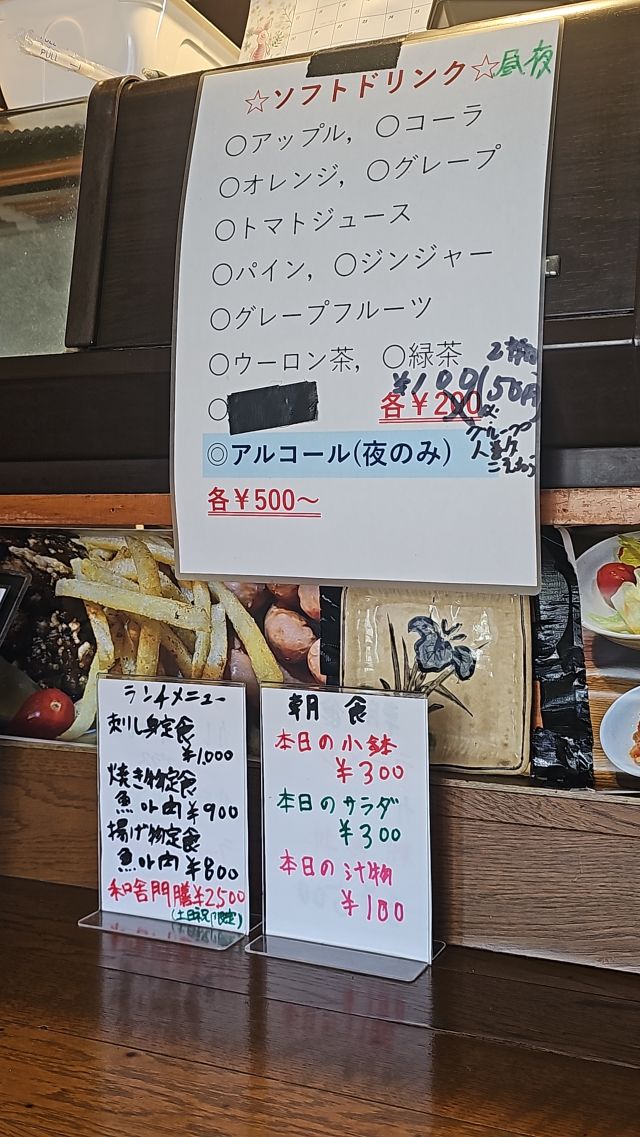 PULL
☆ソフトドリンク☆昼夜
○アップル, ○コーラ
○オレンジ, ○グレープ
○トマトジュース
○パイン, ○ジンジャー
○グレープフルーツ
○ウーロン茶, ○緑茶
¥100(50円
○ 各¥200
◎アルコール(夜のみ)
各¥500〜
ランチメニュー
刺し身定食
¥1,000
焼き物定食
魚or肉¥900
揚げ物定食
魚or肉¥800
和舎門膳¥2500
(土日祝限定)
朝食
本日の小鉢
¥300
本日のサラダ
¥300
本日の汁物
¥100